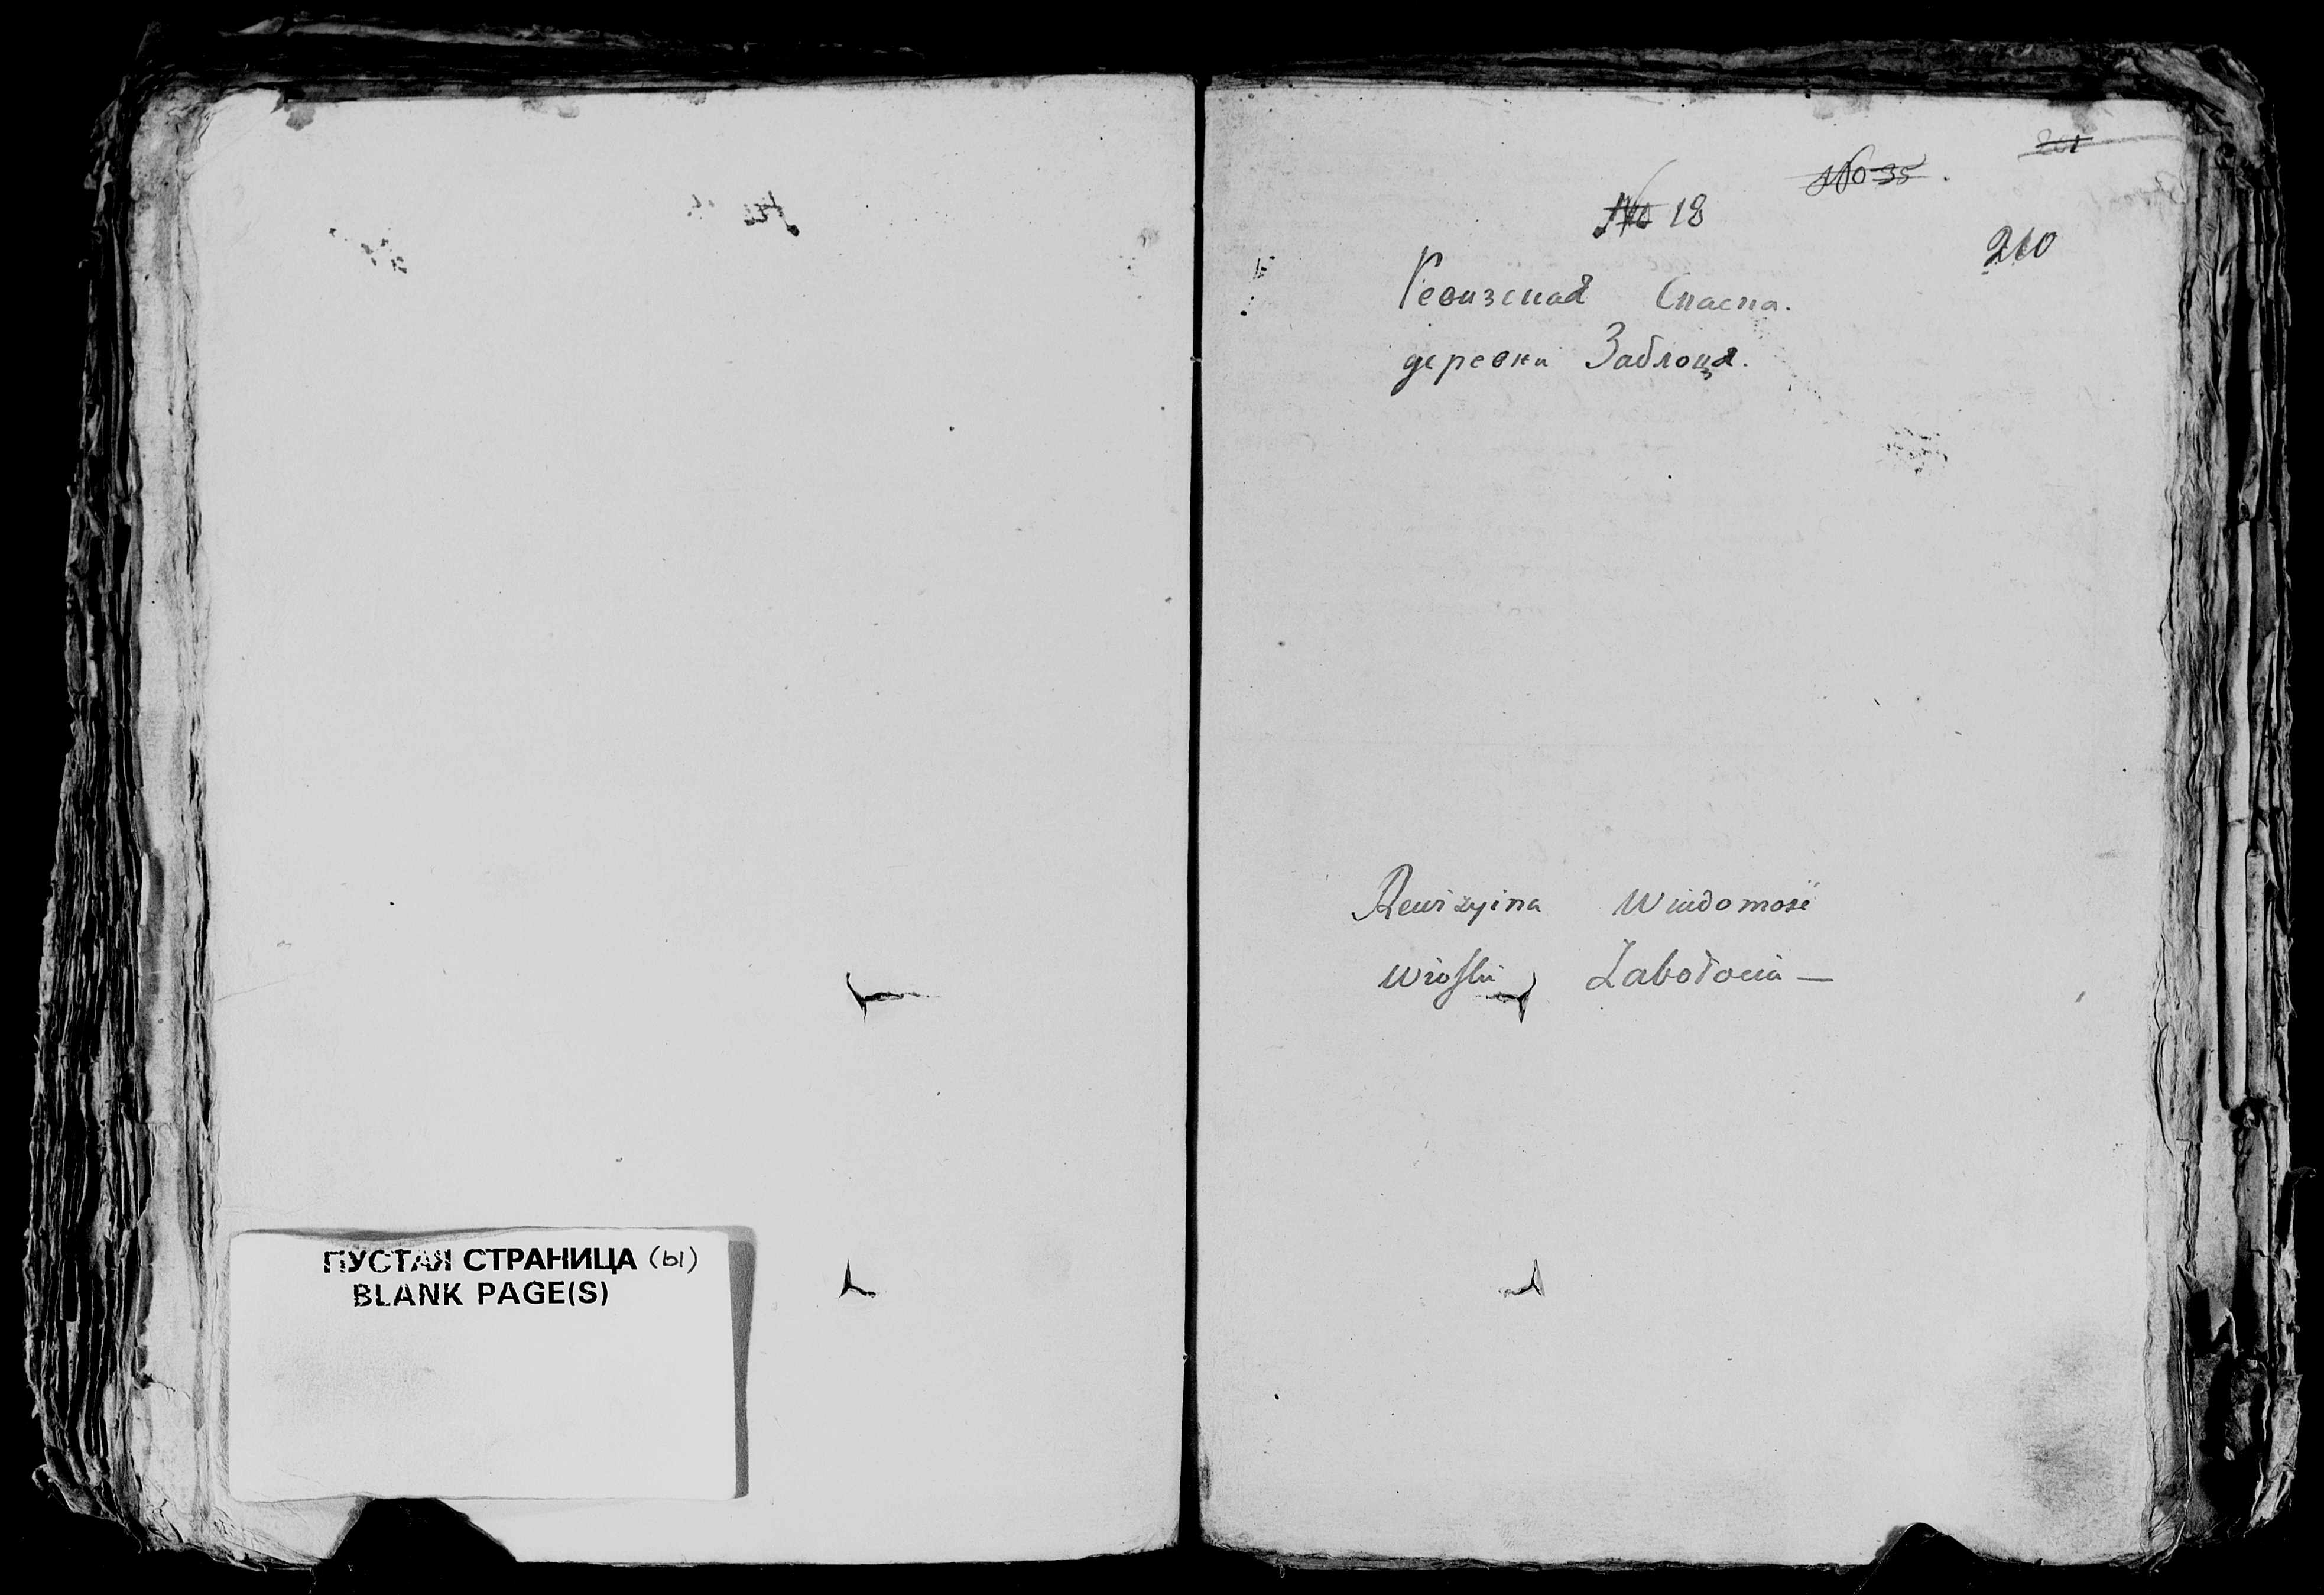 ПУСТАЯ СТРАНИЦА (ы)
BLANK PAGE(S)
201
No 35.
No 18
210
Ревизская Сказка.
деревни Заблоця.
Rewizyina Wiadomosć
wioski Zabołocia —